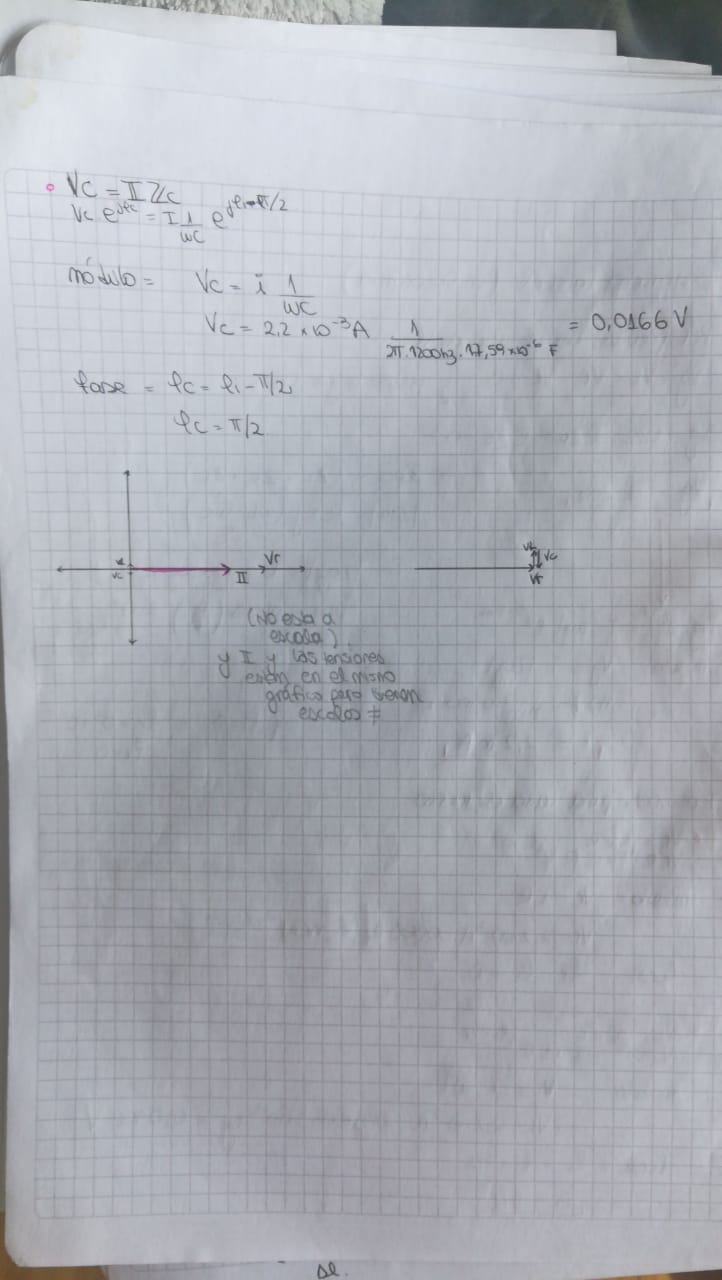 Vc = II Zc
Vc e^jφc = I 1/wc e^jφi-π/2
módulo = Vc = i 1/wc
Vc = 2,2 x 10^-3 A 1/(2π.1200hz.17,59x10^-6 F) = 0,0166 V
fase = φc = φi - π/2
φc = π/2
VL
Vc
II
Vr
VL
Vc
Vr
(No esta a
escala)
y II y las tensiones
estan en el mismo
gráfico pero seran
escalas ≠